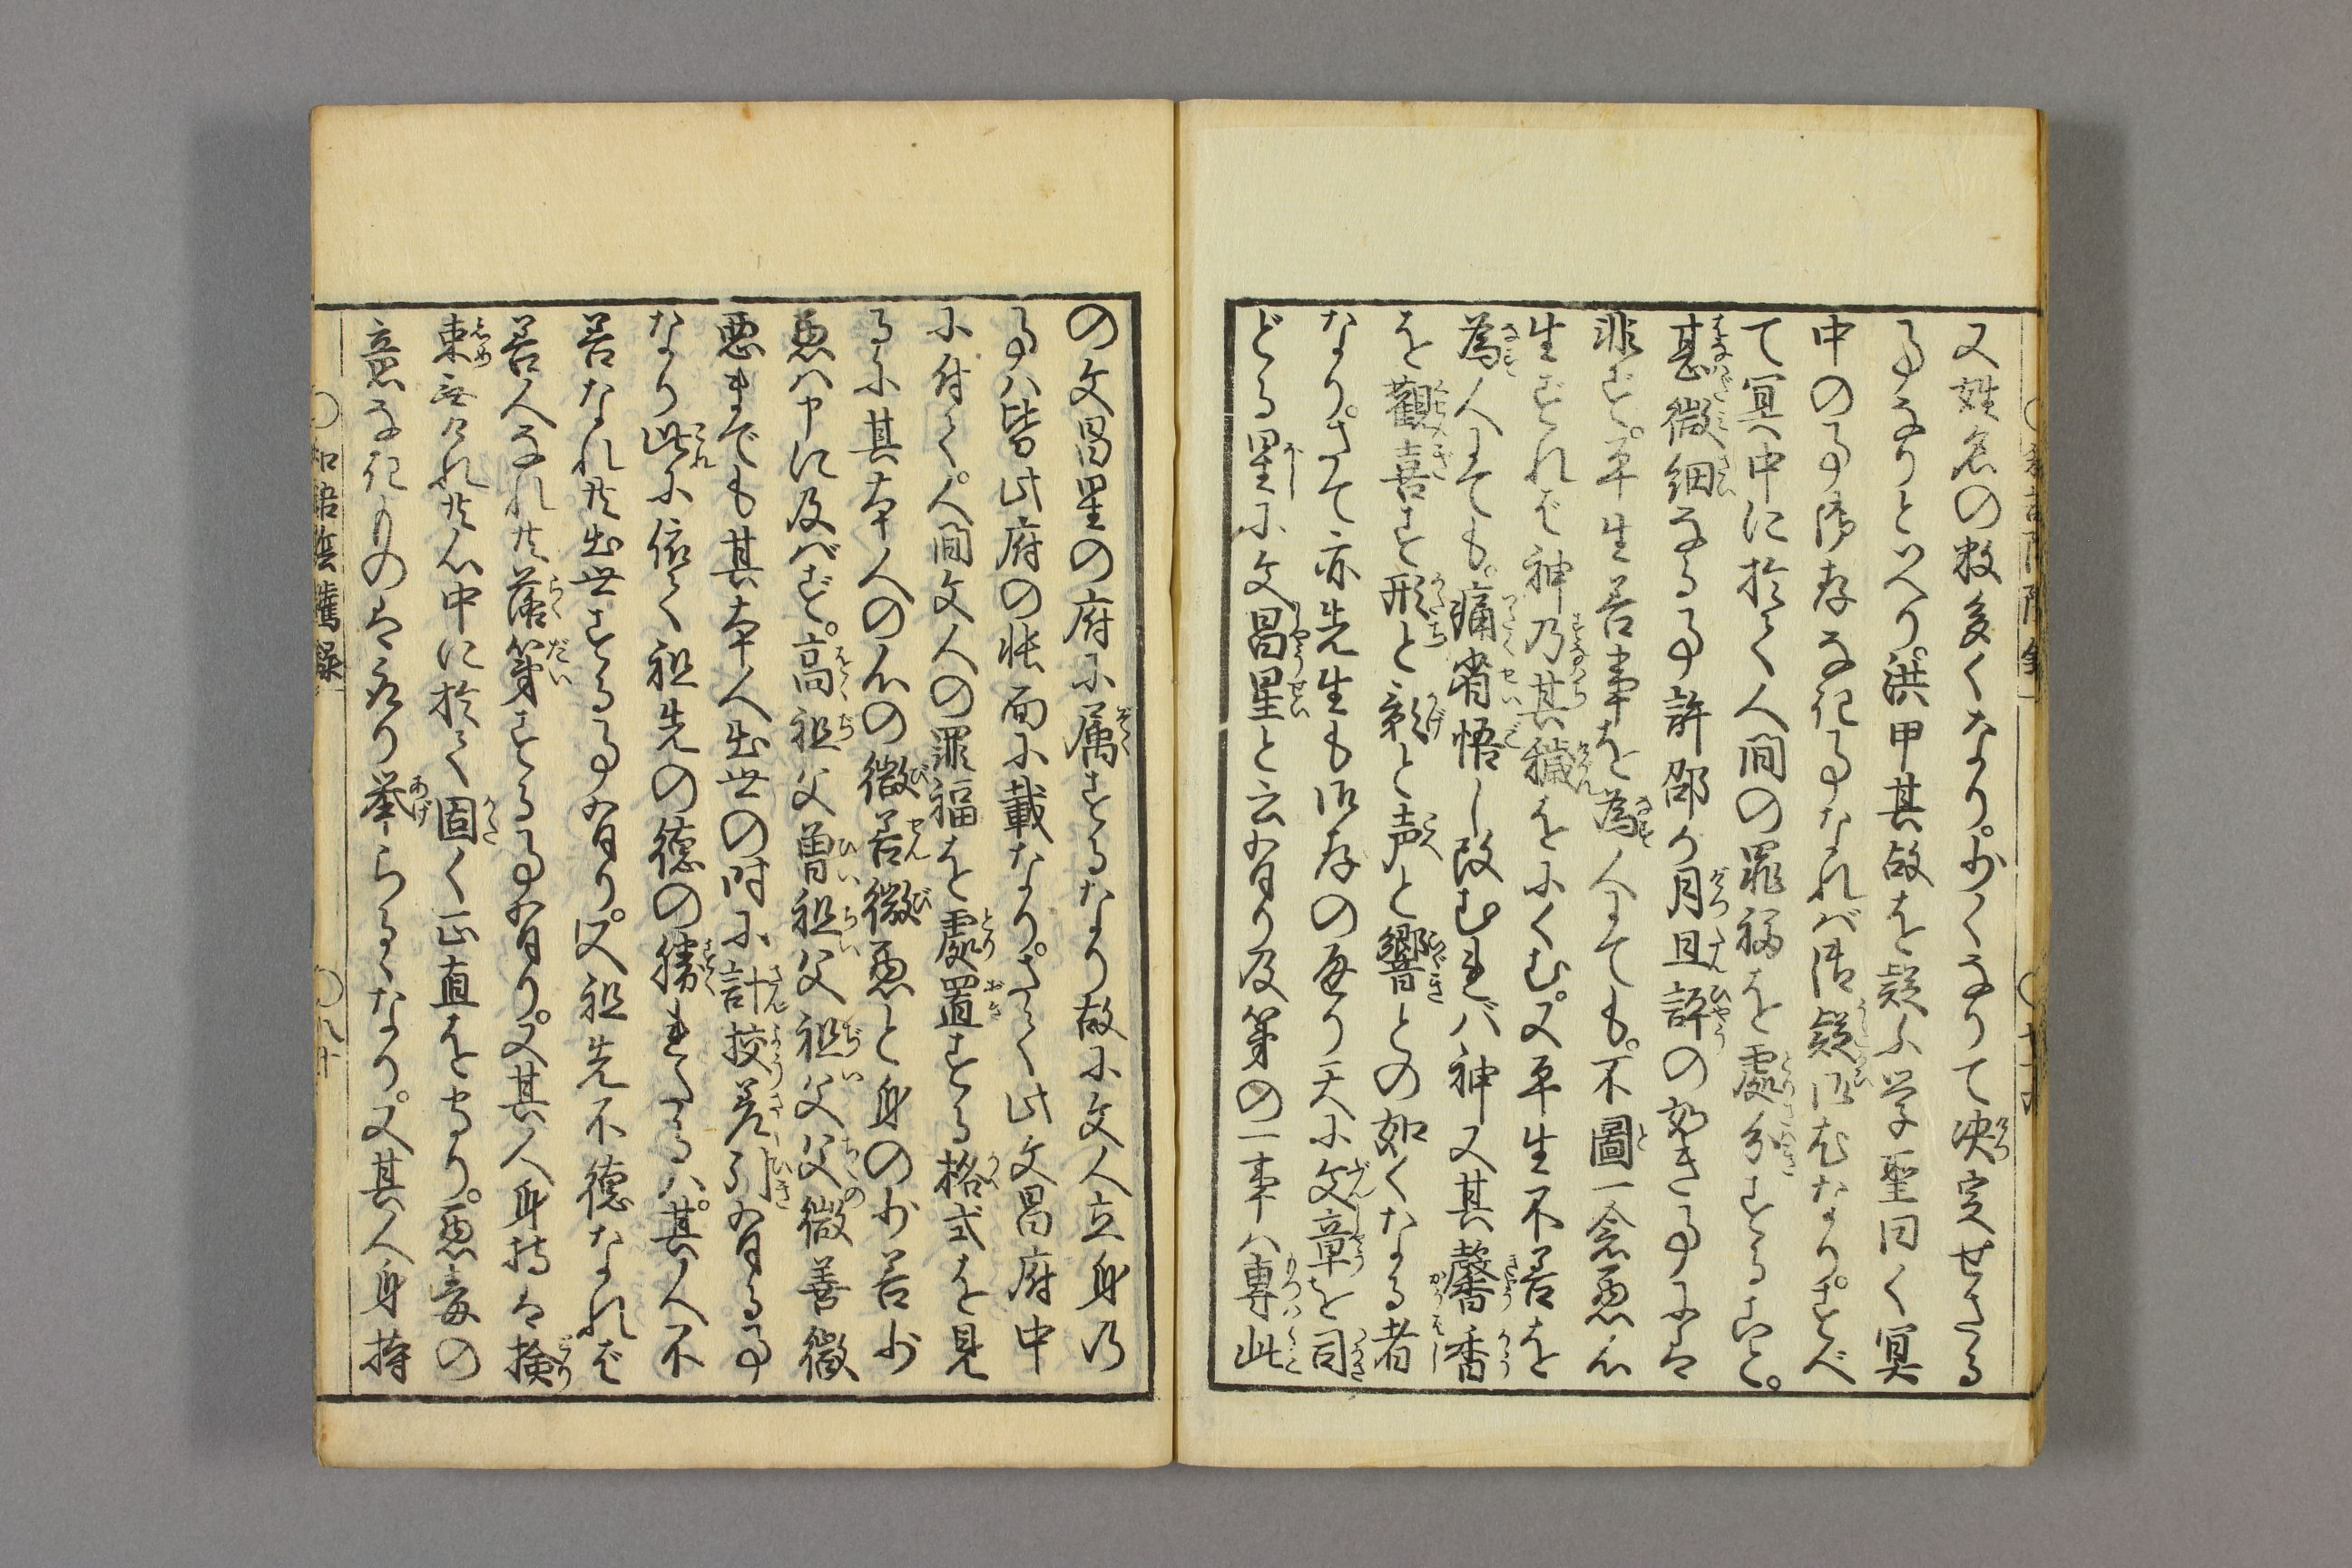 又姓名の数多くなり。少くなりて決定せざる
事なりといへり。洪甲其故を疑ふ学聖曰く冥
中の事御存なき事なれば御疑御尤なり。すべ
て冥中に於て人間の罪福を處分すること。
甚微細なる事許邵が月旦評の如き事には
非ず。平生善事を為人にても。不圖一念悪心
生ずれば神乃其穢をにくむ。又平生不善を
為人にても。痛省悟し改むれバ神又其馨香
を觀喜す形と影と声と響との如くなる者
なり。さて亦先生も御存の通り天に文章を司
どる星に文昌星と云有り及第の一事ハ専此
の文昌星の府に属するなり故に文人立身乃
事ハ皆此府の帳面に載なり。さて此文昌府中
に付て。人間文人の罪福を處置する格式を見
るに其本人の心の微善微悪と身の少善少
悪ハ申に及ばず。高祖父曽祖父祖父父微善微
悪までも其本人出世の時に計挍差引有る事
なり此に依て祖先の徳の勝れたるハ。其人不
善なれ共出世する事有り。又祖先不徳なれば
善人なれ共落第する事有り。又其人身持は検
束無けれ共心中に於て固く正直を守り。悪毒の
意なきものは取り挙らるるなり。又其人身持
和語陰隲録 ○九十